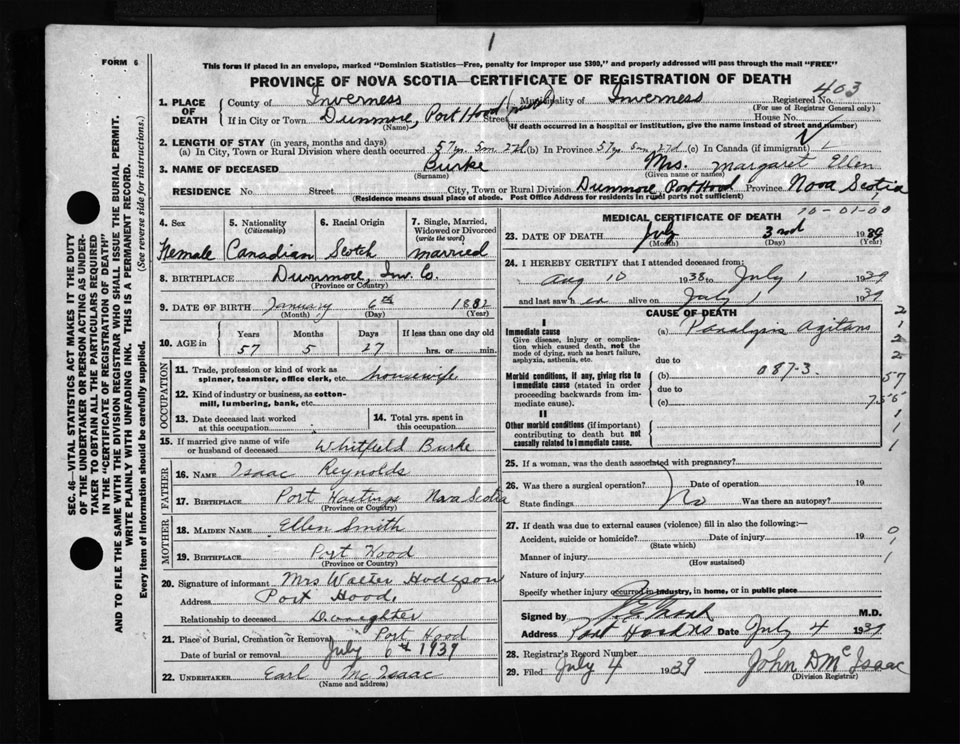 1
FORM 6
This form if placed in an envelope, marked "Dominion Statistics—Free, penalty for improper use $300," and properly addressed will pass through the mail "FREE"
PROVINCE OF NOVA SCOTIA—CERTIFICATE OF REGISTRATION OF DEATH
403
1. PLACE OF DEATH
County of Inverness Municipality of Inverness Registered No.
(For use of Registrar General only)
If in City or Town Dunmore, Port Hood Street House No.
(Name) (If death occurred in a hospital or institution, give the name instead of street and number)
2. LENGTH OF STAY (in years, months and days)
(a) In City, Town or Rural Division where death occurred 57y. 5m 27d (b) In Province 57y 5m 27d (c) In Canada (if immigrant)
3. NAME OF DECEASED Burke Mrs. Margaret Ellen
(Surname) (Given name or names)
RESIDENCE No. Street City, Town or Rural Division Dunmore Port Hood Province Nova Scotia
(Residence means usual place of abode. Post Office Address for residents in rural parts not sufficient)
4. Sex
Female
5. Nationality
(Citizenship)
Canadian
6. Racial Origin
Scotch
7. Single, Married, Widowed or Divorced
(write the word)
married
8. BIRTHPLACE Dunmore, Inv. Co.
(Province or Country)
9. DATE OF BIRTH January 6th 1882
(Month) (Day) (Year)
10. AGE in Years Months Days If less than one day old
57 5 27 hrs. or min.
OCCUPATION
11. Trade, profession or kind of work as spinner, teamster, office clerk, etc. housewife
12. Kind of industry or business, as cotton-mill, lumbering, bank, etc.
13. Date deceased last worked at this occupation
14. Total yrs. spent in this occupation
15. If married give name of wife or husband of deceased Whitfield Burke
FATHER
16. NAME Isaac Reynolds
17. BIRTHPLACE Port Hastings Nova Scotia
(Province or Country)
MOTHER
18. MAIDEN NAME Ellen Smith
19. BIRTHPLACE Port Hood
(Province or Country)
20. Signature of informant Mrs Walter Hodgson
Address Port Hood,
Relationship to deceased Daughter
21. Place of Burial, Cremation or Removal Port Hood
Date of burial or removal July 6th 1939
22. UNDERTAKER Earl McIsaac
(Name and address)
MEDICAL CERTIFICATE OF DEATH
10-01-00
23. DATE OF DEATH July 3rd 1939
(Month) (Day) (Year)
24. I HEREBY CERTIFY that I attended deceased from:
Aug 10 1938 to July 1 1939
and last saw h er alive on July 1 1939
CAUSE OF DEATH
I
Immediate cause
Give disease, injury or complication which caused death, not the mode of dying, such as heart failure, asphyxia, asthenia, etc.
(a) Paralysis Agitans
due to
Morbid conditions, if any, giving rise to immediate cause (stated in order proceeding backwards from immediate cause).
(b) 087-3.
due to
(c)
II
Other morbid conditions (if important) contributing to death but not causally related to immediate cause.
2
1
2
2
57
1
1
25. If a woman, was the death associated with pregnancy?
26. Was there a surgical operation? Date of operation 19
State findings No Was there an autopsy?
27. If death was due to external causes (violence) fill in also the following:—
Accident, suicide or homicide? Date of injury 19
(State which)
Manner of injury
(How sustained)
Nature of injury
0
1
Specify whether injury occurred in industry, in home, or in public place
Signed by M.D.
Address Port Hood NS Date July 4 1939
28. Registrar's Record Number
29. Filed July 4 1939 John D McIsaac
(Division Registrar)
SEC. 46—VITAL STATISTICS ACT MAKES IT THE DUTY
OF THE UNDERTAKER OR PERSON ACTING AS UNDER-
TAKER TO OBTAIN ALL THE PARTICULARS REQUIRED
IN THE "CERTIFICATE OF REGISTRATION OF DEATH"
AND TO FILE THE SAME WITH THE DIVISION REGISTRAR WHO SHALL ISSUE THE BURIAL PERMIT.
WRITE PLAINLY WITH UNFADING INK. THIS IS A PERMANENT RECORD.
Every item of information should be carefully supplied. (See reverse side for instructions.)